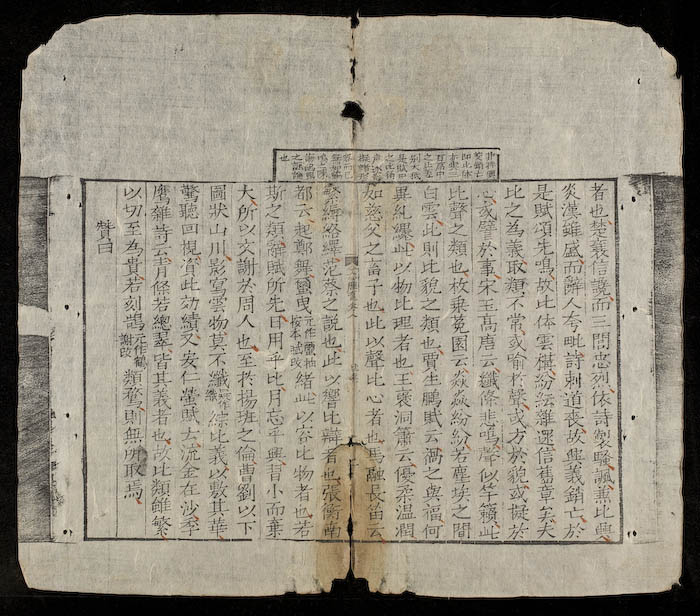 者也楚襄信讒而三閭忠列依詩製騷諷蕪比興
炎漢雖盛而辭人夸毗詩刺道喪故興義銷亡於
是賦頌先鳴故比体雲構紛紜雜遝信舊章矣夫
比之為義取類不常或喻於聲或方於貌或擬於
心或譬於事宋玉高唐云纖條悲鳴聲似竽籟此
比聲之類也枚乘菟園云焱焱紛紛若塵埃之間
白雲此則比貌之類也賈生鵬賦云禍之與福何
異糾纆此以物比理者也王褒洞簫云優柔温潤
如慈父之畜子也此以聲比心者也馬融長笛云
繁縟絡繹范蔡之說也此以響比辯者也張衡南
都云起鄭舞蠒曳元作蠒抽按本賦改緒此以容比物者也若
斯之類辭賦所先日用乎比月忘乎興習小而棄
大所以文謝於周人也至於揚班之倫曹劉以下
圖狀山川影寫雲物莫不纖綜比義以敷其華
驚聽回視資此効績又安仁螢賦云流金在沙季
鷹雜詩云青條若總翠皆其義者也故比類雖繁
以切至為貴若刻鵠元作鶴謝改類鶩則無所取焉
贊曰